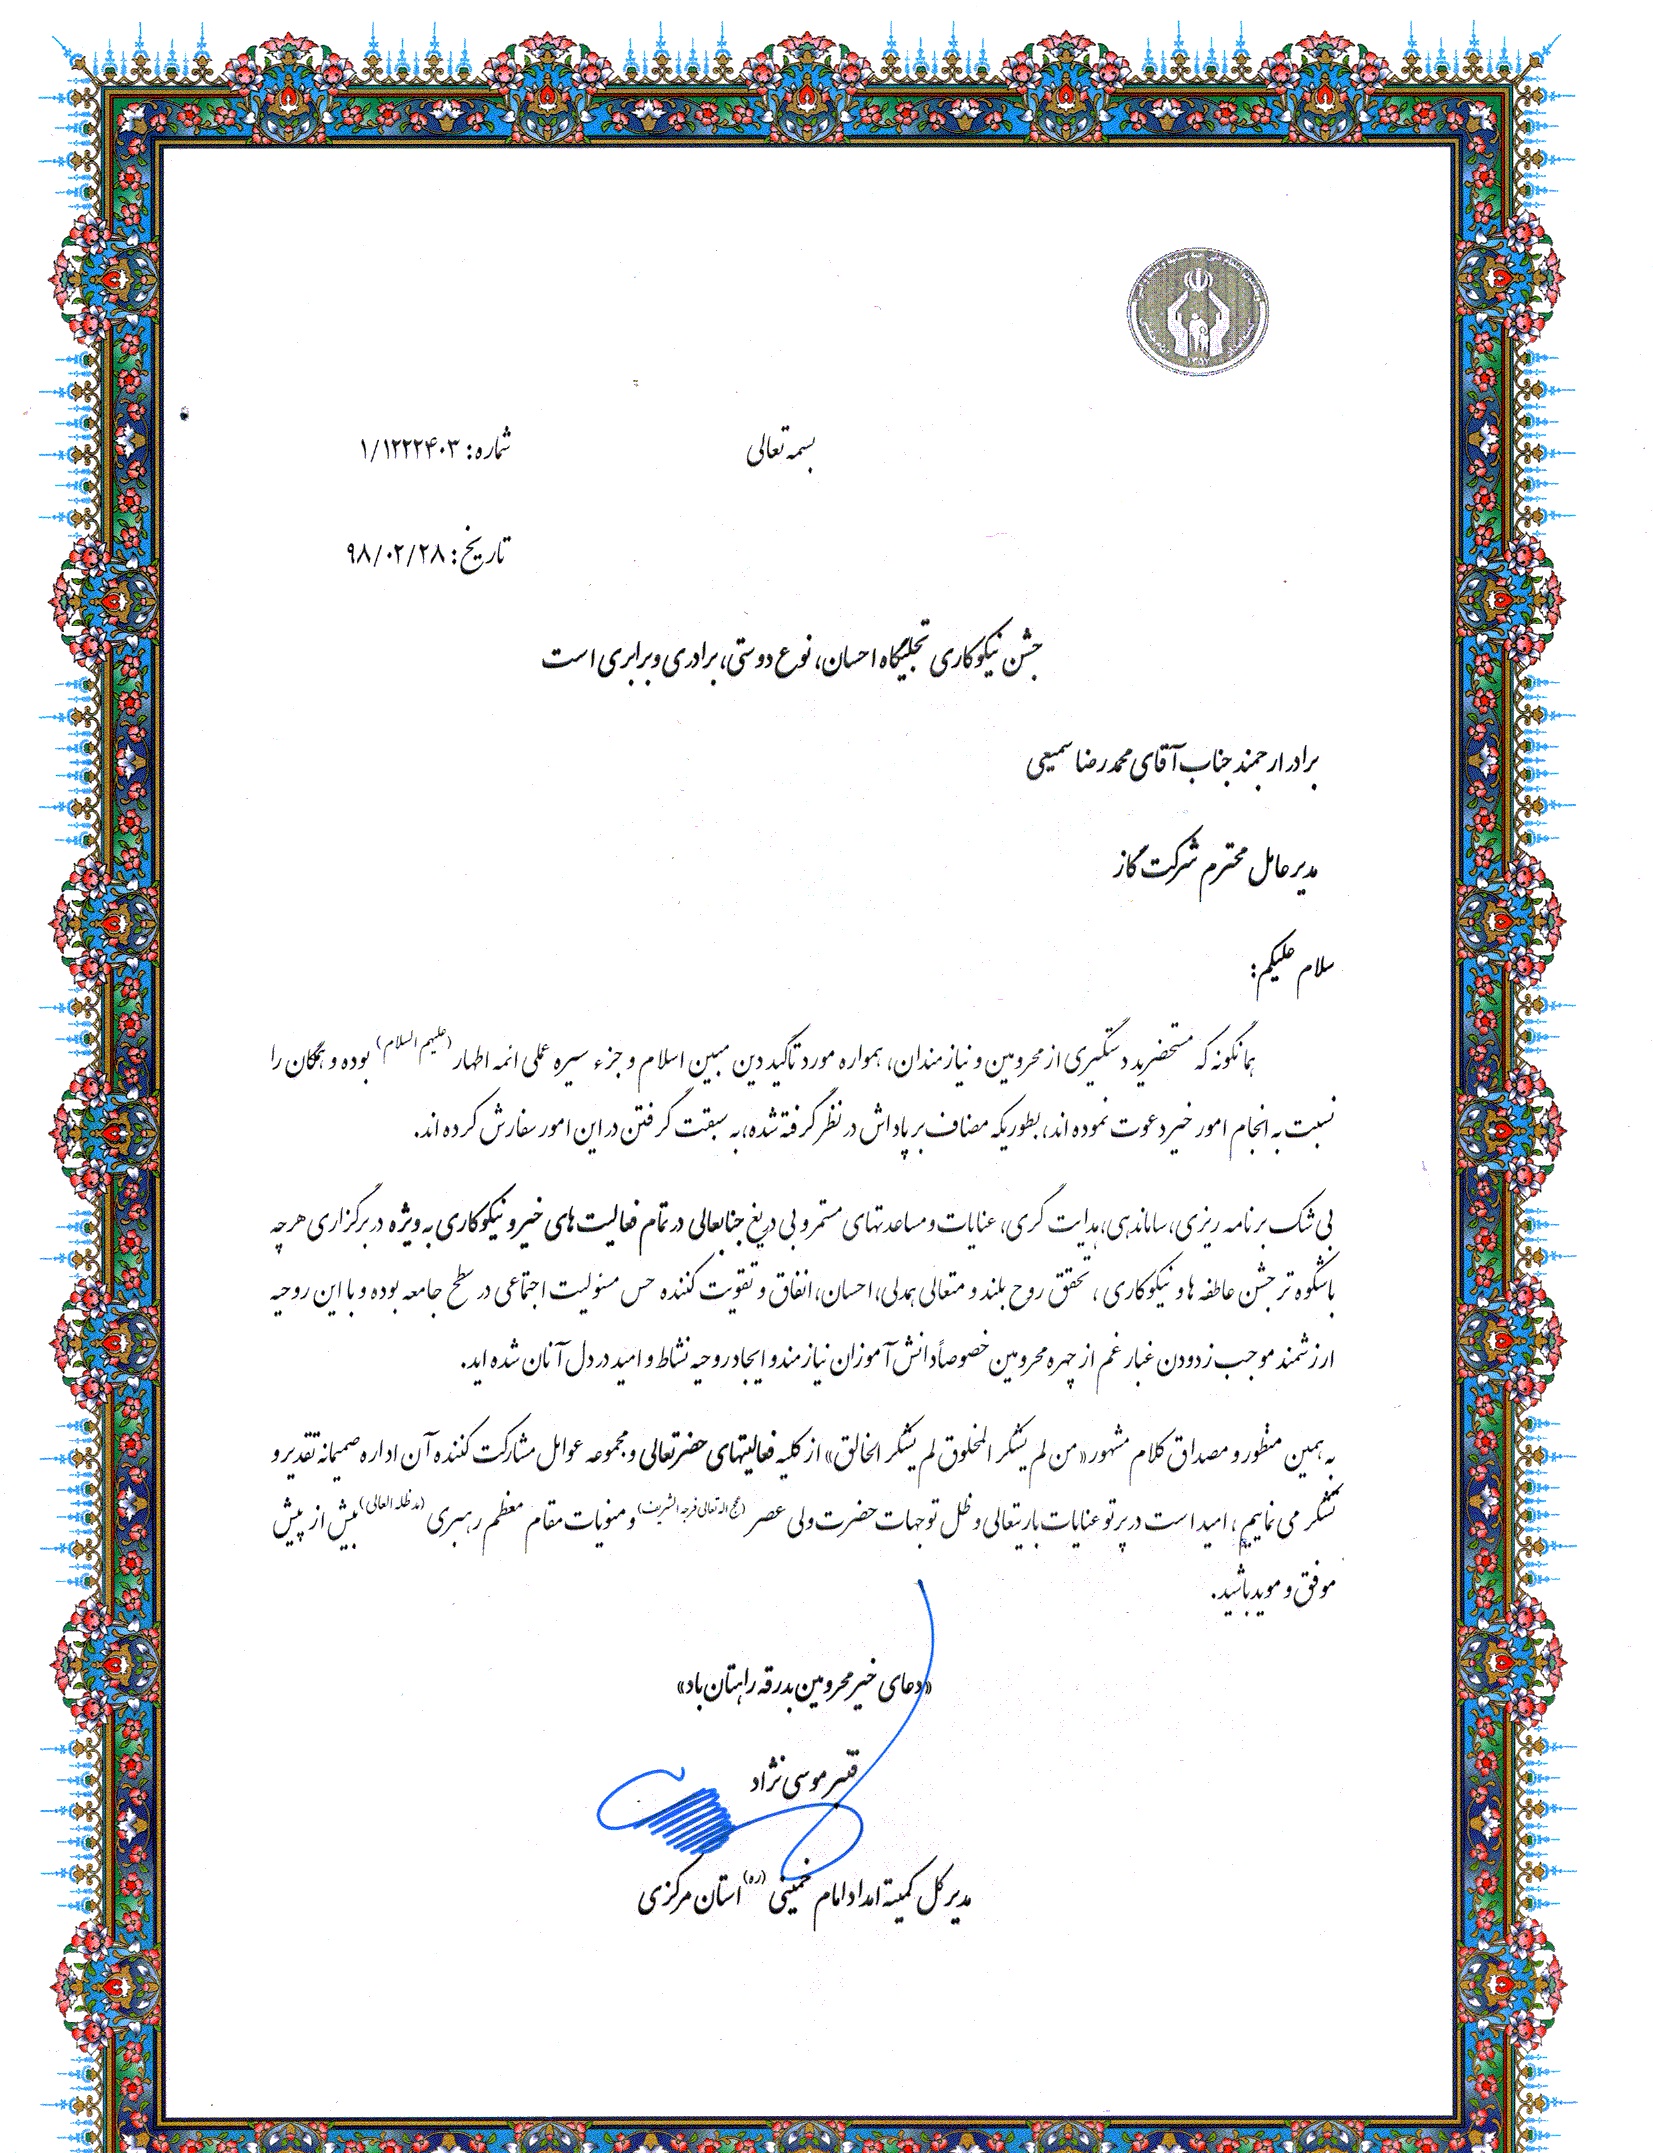 بسمه تعالی
شماره: ۱/۱۲۲۲۴۰۳
تاریخ: ۹۸/۰۲/۲۸
جشن نیکوکاری تجلیگاه احسان، نوع دوستی، برادری و برابری است
برادر ارجمند جناب آقای محمدرضا سمیعی
مدیرعامل محترم شرکت گاز
سلام علیکم:
همانگونه که مستحضرید دستگیری از محرومین و نیازمندان، همواره مورد تأکید دین مبین اسلام و جزء سیره عملی ائمه اطهار (علیهم السلام) بوده و همگان را
نسبت به انجام امور خیر دعوت نموده اند، بطوریکه مضاف بر پاداش در نظر گرفته شده، به سبقت گرفتن در این امور سفارش کرده اند.
بی شک برنامه ریزی، ساماندهی، هدایت گری، عنایات و مساعدتهای مستمر و بی دریغ جنابعالی در تمام فعالیت های خیر و نیکوکاری به ویژه در برگزاری هرچه
باشکوه تر جشن عاطفه ها و نیکوکاری ، تحقق روح بلند و متعالی همدلی، احسان، انفاق و تقویت کننده حس مسئولیت اجتماعی در سطح جامعه بوده و با این روحیه
ارزشمند موجب زدودن غبار غم از چهره محرومین خصوصاً دانش آموزان نیازمند و ایجاد روحیه نشاط و امید در دل آنان شده اید.
به همین منظور و مصداق کلام مشهور «من لم یشکر المخلوق لم یشکر الخالق» از کلیه فعالیتهای حضرتعالی و مجموعه عوامل مشارکت کننده آن اداره صمیمانه تقدیر و
تشکر می نماییم، امید است در پرتو عنایات باریتعالی و ظل توجهات حضرت ولی عصر (عج اله تعالی فرجه الشریف) و منویات مقام معظم رهبری (مدظله العالی) بیش از پیش
موفق و موید باشید.
«دعای خیر محرومین بدرقه راهتان باد»
قنبر موسی نژاد
مدیرکل کمیته امداد امام خمینی (ره) استان مرکزی